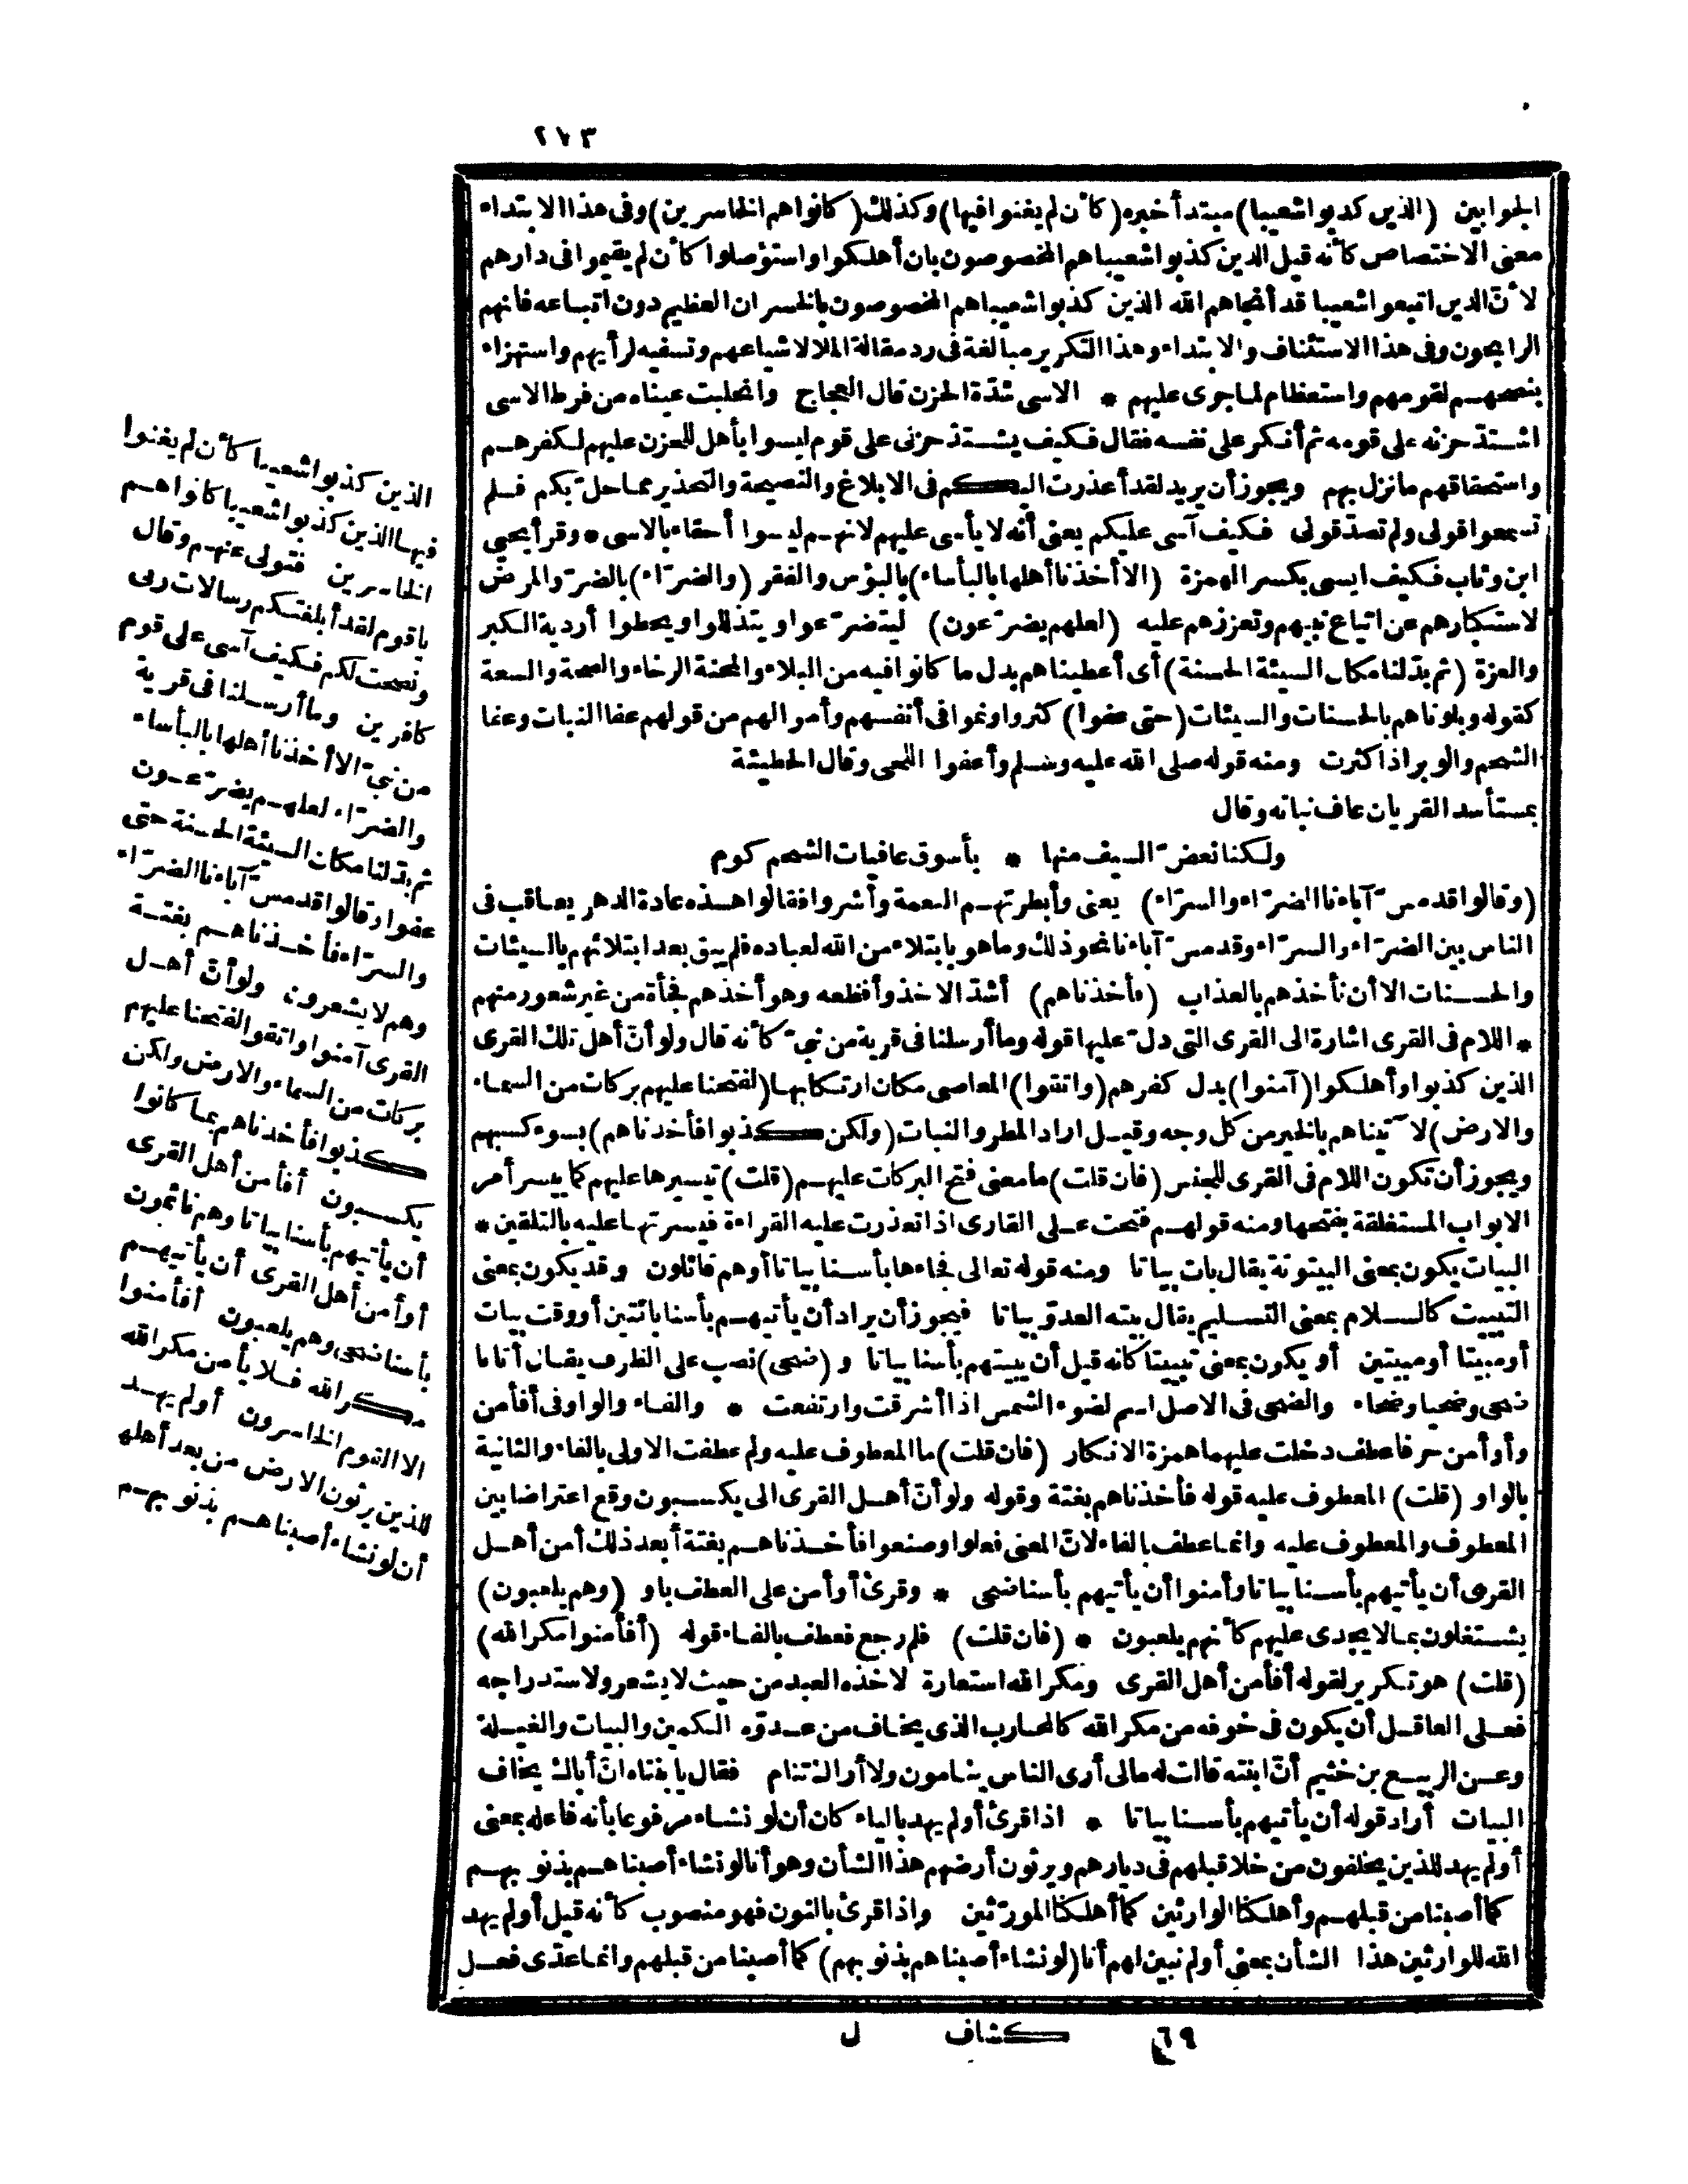 ٢٧٣
الجوابين (الذين كذبوا شعيبا) مبتدأ خبره (كأن لم يغنوا فيها) وكذلك (كانوا هم الخاسرين) وفى هذا الابتداء
معنى الاختصاص كأنه قيل الذين كذبوا شعيبا هم المخصوصون بان أهلكوا واستؤصلوا كأن لم يقيموا فى دارهم
لأنّ الذين اتبعوا شعيبا قد أنجاهم الله الذين كذبوا شعيبا هم المخصوصون بالخسران العظيم دون اتباعه فانهم
الرابحون وفى هذا الاستئناف والابتداء وهذا التكرير مبالغة فى رد مقالة الملا لاشياعهم وتسفيه لرأيهم واستهزاء
بنصحهم لقومهم واستعظام لما جرى عليهم * الاسى شدّة الحزن قال العجاج وانحلبت عيناه من فرط الاسى
اشتدّ حزنه على قومه ثم أنكر على نفسه فقال فكيف يشتدّ حزنى على قوم ليسوا بأهل للحزن عليهم لكفرهم
واستحقاقهم ما نزل بهم ويجوز أن يريد لقد أعذرت اليكم فى الابلاغ والنصيحة والتحذير مما حلّ بكم فلم
تسمعوا قولى ولم تصدّقونى فكيف آسى عليكم يعنى أنه لا يأسى عليهم لانهم ليسوا أحقاء بالاسى * وقرأ يحيى
ابن وثاب فكيف ايسى بكسر الهمزة (الا أخذنا أهلها بالبأساء) بالبؤس والفقر (والضرّاء) بالضرّ والمرض
لاستكبارهم عن اتباع نبيهم وتعززهم عليه (لعلهم يضرّعون) ليتضرّعوا ويتذللوا ويحطوا أردية الكبر
والعزة (ثم بدّلنا مكان السيئة الحسنة) أى أعطيناهم بدل ما كانوا فيه من البلاء والمحنة الرخاء والصحة والسعة
كقوله وبلوناهم بالحسنات والسيئات (حتى عفوا) كثروا ونموا فى أنفسهم وأموالهم من قولهم عفا النبات وعفا
الشحم والوبر اذا كثرت ومنه قوله صلى الله عليه وسلم وأعفوا اللحى وقال الحطيئة
بمستأسد القريان عاف نباته وقال
ولكنا نعضّ السيف منها * بأسوق عافيات الشحم كوم
(وقالوا قد مسّ آباءنا الضرّاء والسرّاء) يعنى وأبطرتهم النعمة وأشروا فقالوا هذه عادة الدهر يعاقب فى
الناس بين الضرّاء والسرّاء وقد مسّ آباءنا نحو ذلك وما هو بابتلاء من الله لعباده فلم يبق بعد ابتلائهم بالسيئات
والحسنات الا أن نأخذهم بالعذاب (فأخذناهم) أشدّ الاخذ وأفظعه وهو أخذهم فجأة من غير شعور منهم
* اللام فى القرى اشارة الى القرى التى دلّ عليها قوله وما أرسلنا فى قرية من نبىّ كأنه قال ولو أنّ أهل تلك القرى
الذين كذبوا وأهلكوا (آمنوا) بدل كفرهم (واتقوا) المعاصى مكان ارتكابها (لفتحنا عليهم بركات من السماء
والارض) لآتيناهم بالخير من كل وجه وقيل اراد المطر والنبات (ولكن كذبوا فأخذناهم) بسوء كسبهم
ويجوز أن تكون اللام فى القرى للجنس (فان قلت) ما معنى فتح البركات عليهم (قلت) تيسيرها عليهم كما ييسر أمر
الابواب المستغلقة بفتحها ومنه قولهم فتحت على القارئ اذا تعذرت عليه القراءة فيسرتها عليه بالتلقين *
البيات يكون بمعنى البيتوتة يقال بات بياتا ومنه قوله تعالى فجاءها بأسنا بياتا أو هم قائلون وقد يكون بمعنى
التبييت كالسلام بمعنى التسليم يقال بيته العدوّ بياتا فيجوز أن يراد أن يأتيهم بأسنا بائتين أو وقت بيات
أو مبيتا أو مبيتين أو يكون بمعنى تبييتا كانه قيل أن يبيتهم بأسنا بياتا و (ضحى) نصب على الظرف يقال أتانا
ضحى وضحيا وضحاء والضحى فى الاصل اسم لضوء الشمس اذا أشرقت وارتفعت * والفاء والواو فى أفأمن
وأو أمن حرفا عطف دخلت عليهما همزة الانكار (فان قلت) ما المعطوف عليه ولم عطفت الاولى بالفاء والثانية
بالواو (قلت) المعطوف عليه قوله فأخذناهم بغتة وقوله ولو أنّ أهل القرى الى يكسبون وقع اعتراضا بين
المعطوف والمعطوف عليه وانما عطف بالفاء لانّ المعنى فعلوا وصنعوا فأخذناهم بغتة أبعد ذلك أمن أهل
القرى أن يأتيهم بأسنا بياتا وأمنوا أن يأتيهم بأسنا ضحى * وقرئ أو أمن على العطف باو (وهم يلعبون)
يشتغلون بما لا يجدى عليهم كأنهم يلعبون * (فان قلت) فلم رجع فعطف بالفاء قوله (أفأمنوا مكر الله)
(قلت) هو تكرير لقوله أفأمن أهل القرى ومكر الله استعارة لاخذه العبد من حيث لا يشعر ولاستدراجه
فعلى العاقل أن يكون فى خوفه من مكر الله كالمحارب الذى يخاف من عدوّه الكمين والبيات والغيلة
وعن الربيع بن خثيم أنّ ابنته قالت له مالى أرى الناس ينامون ولا أراك تنام فقال يا بنتاه انّ أباك يخاف
البيات أراد قوله أن يأتيهم بأسنا بياتا * اذا قرئ أولم يهد بالياء كان أن لو نشاء مرفوعا بأنه فاعله بمعنى
أولم يهد للذين يخلفون من خلا قبلهم فى ديارهم ويرثون أرضهم هذا الشأن وهو أنا لو نشاء أصبناهم بذنوبهم
كما أصبنا من قبلهم وأهلكنا الوارثين كما أهلكنا المورّثين واذا قرئ بالنون فهو منصوب كأنه قيل أولم يهد
الله للوارثين هذا الشأن بمعنى أولم نبين لهم أنا (لو نشاء أصبناهم بذنوبهم) كما أصبنا من قبلهم وانما عدّى فعل
الذين كذبوا شعيبا كأن لم يغنوا
فيها الذين كذبوا شعيبا كانوا هم
الخاسرين فتولى عنهم وقال
يا قوم لقد أبلغتكم رسالات ربى
ونصحت لكم فكيف آسى على قوم
كافرين وما أرسلنا فى قرية
من نبىّ الا أخذنا أهلها بالبأساء
والضرّاء لعلهم يضرّعون
ثم بدّلنا مكان السيئة الحسنة حتى
عفوا وقالوا قد مسّ آباءنا الضرّاء
والسرّاء فأخذناهم بغتة
وهم لا يشعرون ولو أنّ أهل
القرى آمنوا واتقوا لفتحنا عليهم
بركات من السماء والارض ولكن
كذبوا فأخذناهم بما كانوا
يكسبون أفأمن أهل القرى
أن يأتيهم بأسنا بياتا وهم نائمون
أو أمن أهل القرى أن يأتيهم
بأسنا ضحى وهم يلعبون أفأمنوا
مكر الله فلا يأمن مكر الله
الا القوم الخاسرون أولم يهد
للذين يرثون الارض من بعد أهلها
أن لو نشاء أصبناهم بذنوبهم
٦٩ كشاف ل